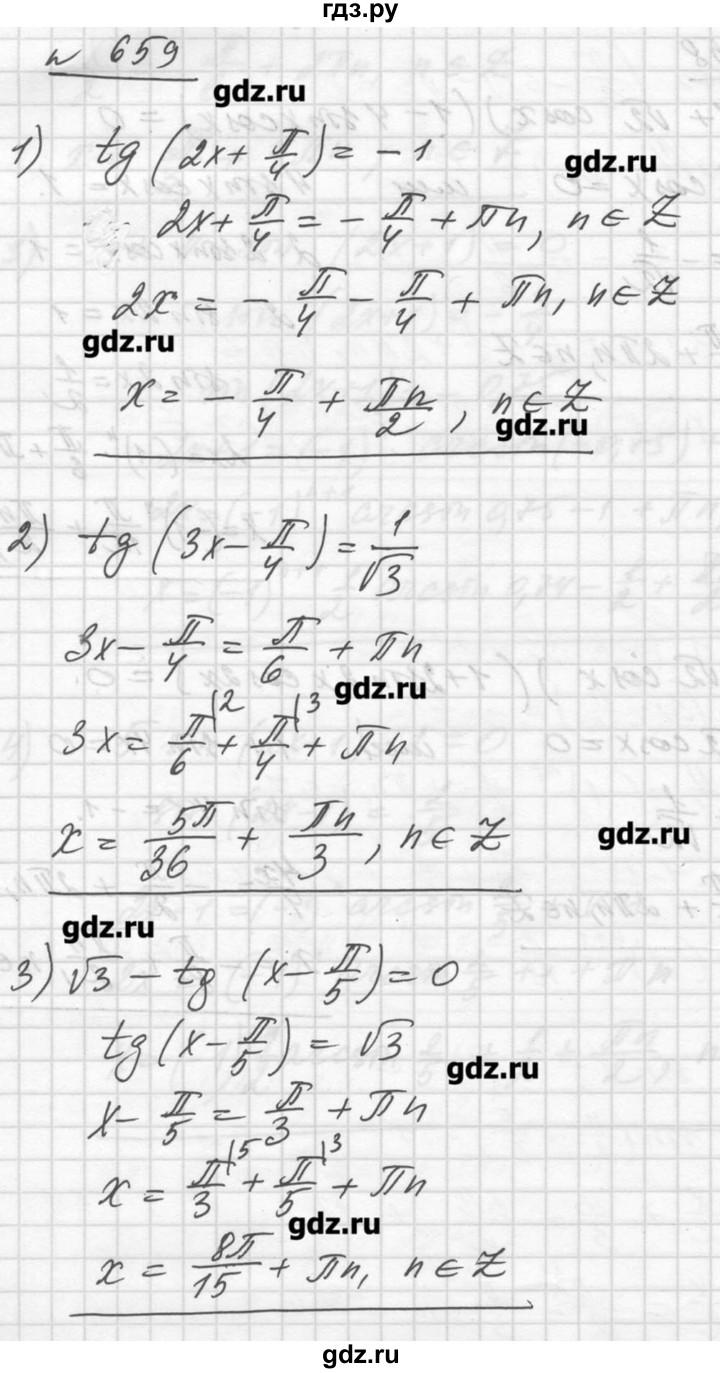 гдз.ру
№ 659
gdz.ru
1) tg (2x + π/4) = −1
gdz.ru
2x + π/4 = − π/4 + πn, n ∈ Z
2x = − π/4 − π/4 + πn, n ∈ Z
gdz.ru
x = − π/4 + πn/2, n ∈ Z
gdz.ru
2) tg (3x − π/4) = 1/√3
3x − π/4 = π/6 + πn
gdz.ru
3x = π/6 |2 + π/4 |3 + πn
x = 5π/36 + πn/3, n ∈ Z
gdz.ru
gdz.ru
3) √3 − tg (x − π/5) = 0
tg (x − π/5) = √3
gdz.ru
x − π/5 = π/3 + πn
x = π/3 |5 + π/5 |3 + πn
gdz.ru
x = 8π/15 + πn, n ∈ Z
gdz.ru